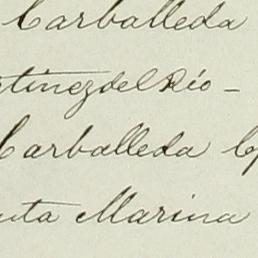 Carballeda
rtinezdelRio -
Carballeda
uta Marina